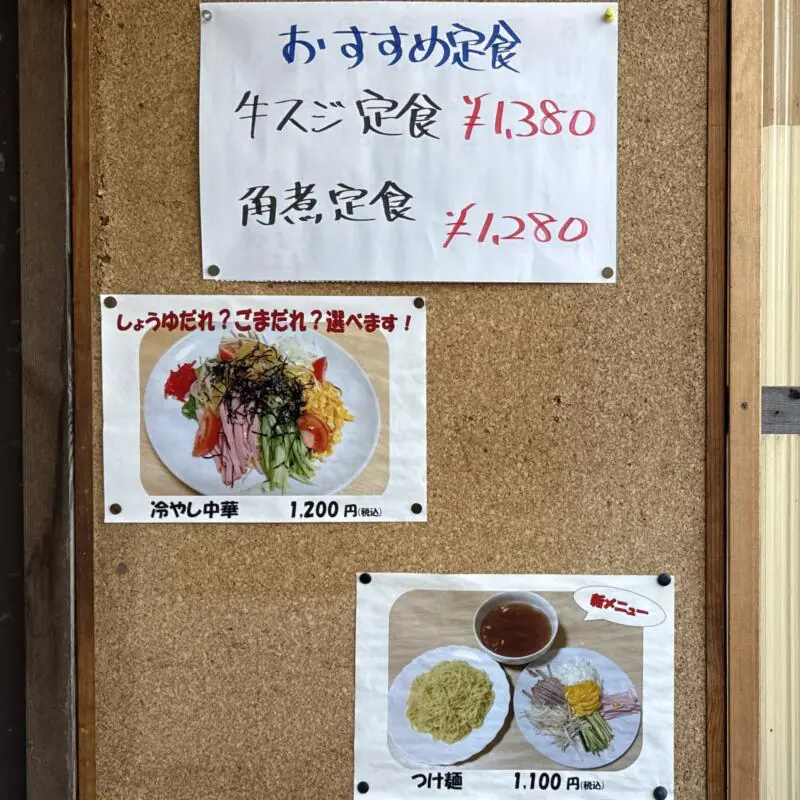 おすすめ定食
牛スジ定食 ¥1,380
角煮定食 ¥1,280
しょうゆだれ?ごまだれ?選べます!
冷やし中華 1,200円(税込)
新メニュー
つけ麺 1,100円(税込)